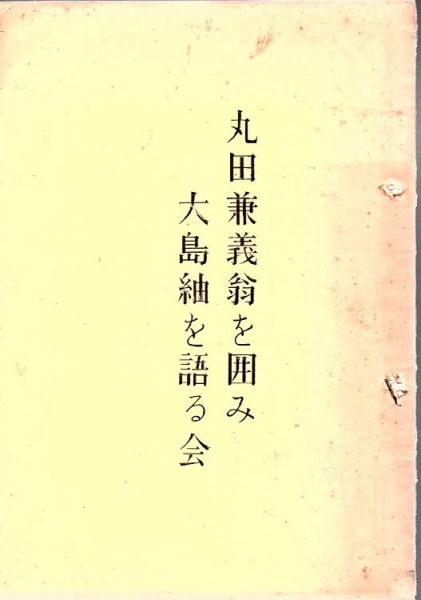 丸田兼義翁を囲み
大島紬を語る会